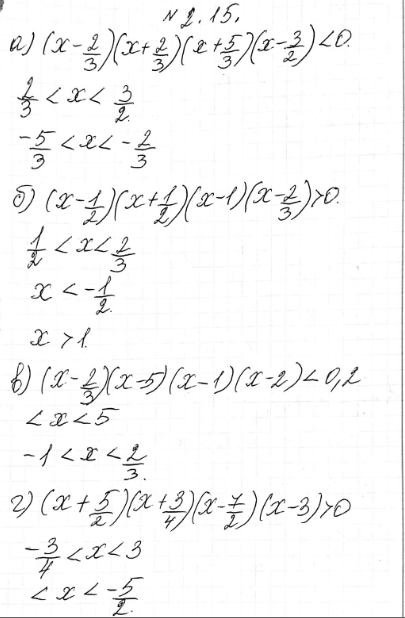 № 2.15.
а) (x-2/3)(x+2/3)(x+5/3)(x-3/2)<0.
2/3 < x < 3/2.
-5/3 < x < -2/3
б) (x-1/2)(x+1/2)(x-1)(x-2/3)>0.
1/2 < x < 2/3
x < -1/2.
x > 1.
в) (x-2/3)(x-5)(x-1)(x-2)<0,2
< x < 5
-1 < x < 2/3.
г) (x+5/2)(x+3/4)(x-7/2)(x-3)>0
-3/4 < x < 3
< x < -5/2.